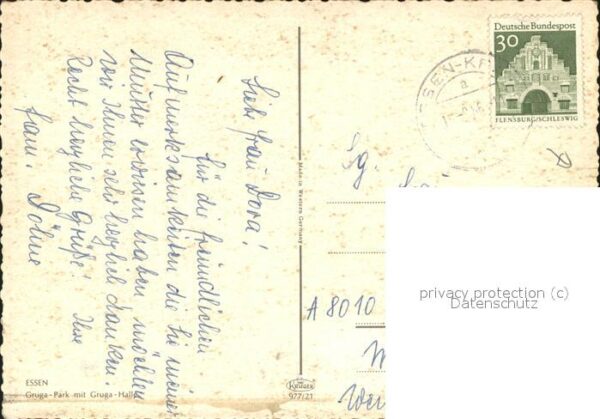 Liebe Frau Dora!
Für die freundlichen
Aufmerksamkeiten die Sie meiner
Mutter erwiesen haben möchten
wir Ihnen sehr herzlich danken.
Recht herzliche Grüße! Ihre
Fam. Döhne
ESSEN
Gruga-Park mit Gruga-Halle
Made in Western Germany
Krüger
977/21
Deutsche Bundespost
30
FLENSBURG/SCHLESWIG
ESSEN-K
a
Sg.
A 8010
privacy protection (c)
Datenschutz